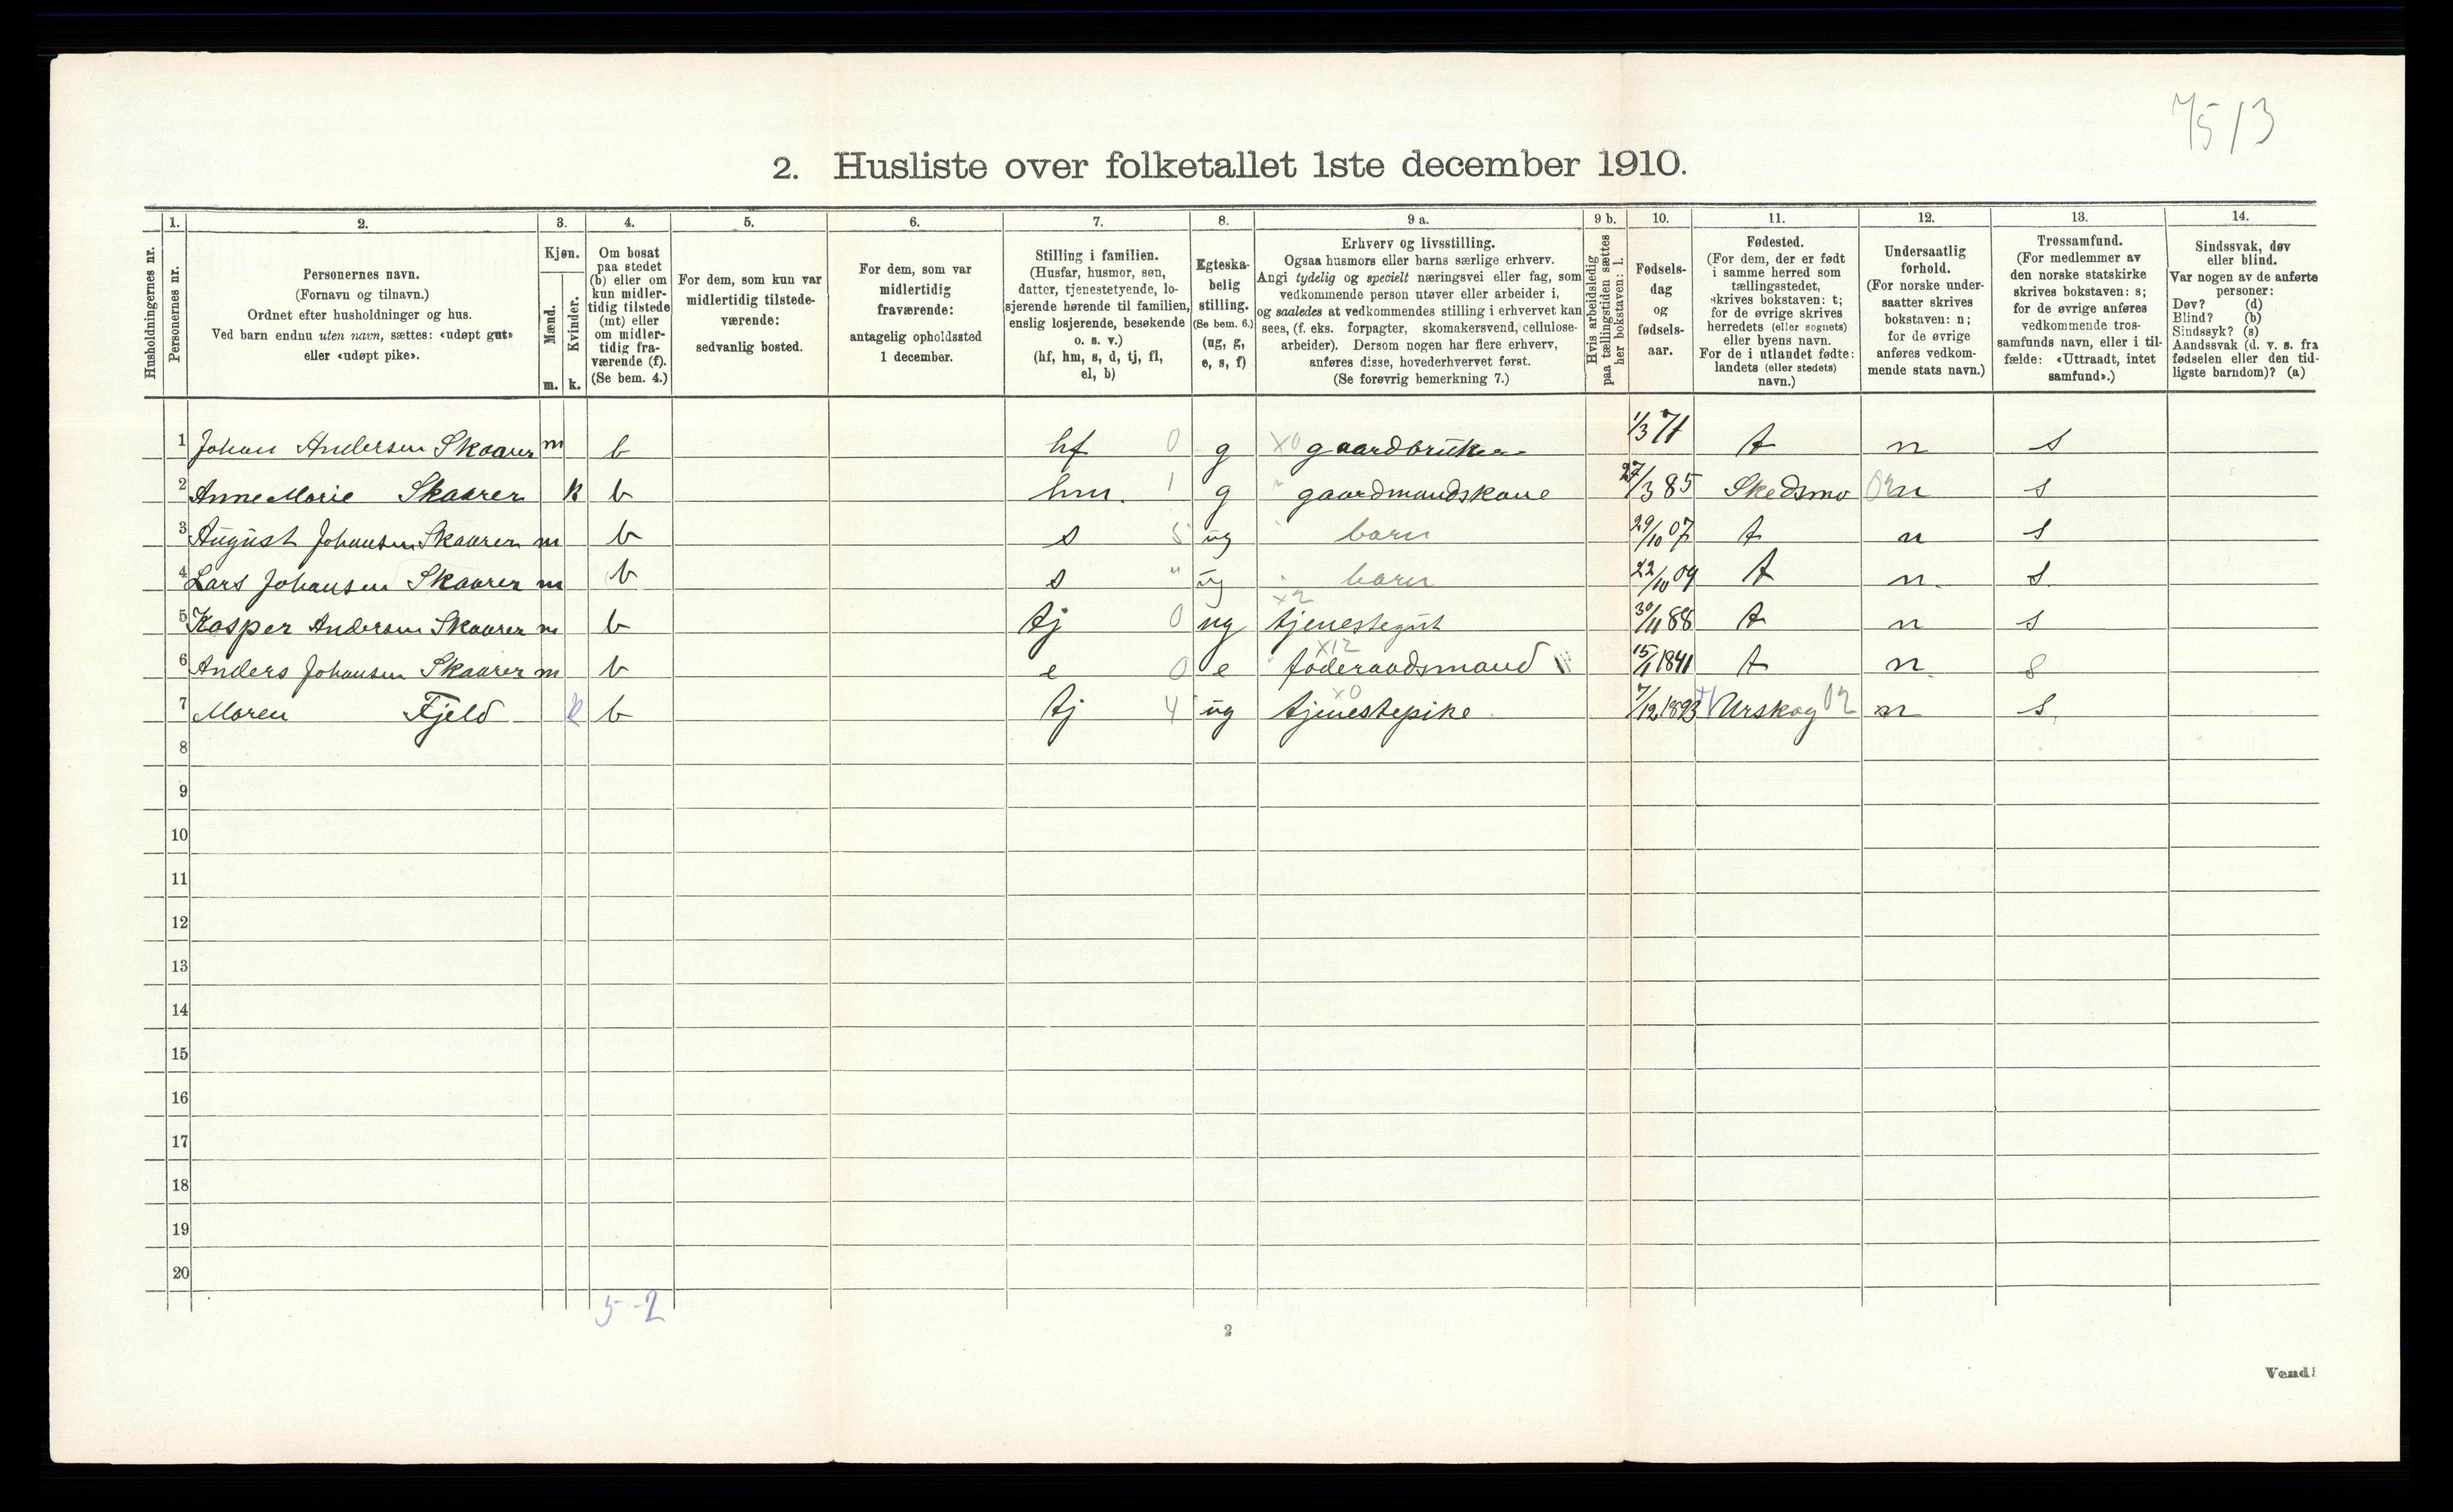 75/3
2. Husliste over folketallet 1ste december 1910.
1. 2. 3. 4. 5. 6. 7. 8. 9 a. 9 b. 10. 11. 12. 13. 14.
Husholdningernes nr.
Personernes nr.
Personernes navn.
(Fornavn og tilnavn.)
Ordnet efter husholdninger og hus.
Ved barn endnu uten navn, sættes: «udøpt gut»
eller «udøpt pike».
Kjøn.
Mænd.
Kvinder.
m. k.
Om bosat
paa stedet
(b) eller om
kun midler-
tidig tilstede
(mt) eller
om midler-
tidig fra-
værende (f).
(Se bem. 4.)
For dem, som kun var
midlertidig tilstede-
værende:
sedvanlig bosted.
For dem, som var
midlertidig
fraværende:
antagelig opholdssted
1 december.
Stilling i familien.
(Husfar, husmor, søn,
datter, tjenestetyende, lo-
sjerende hørende til familien,
enslig losjerende, besøkende
o. s. v.)
(hf, hm, s, d, tj, fl,
el, b)
Egteska-
belig
stilling.
(Se bem. 6.)
(ug, g,
e, s, f)
Erhverv og livsstilling.
Ogsaa husmors eller barns særlige erhverv.
Angi tydelig og specielt næringsvei eller fag, som
vedkommende person utøver eller arbeider i,
og saaledes at vedkommendes stilling i erhvervet kan
sees, (f. eks. forpagter, skomakersvend, cellulose-
arbeider). Dersom nogen har flere erhverv,
anføres disse, hovederhvervet først.
(Se forøvrig bemerkning 7.)
Hvis arbeidsledig
paa tællingstiden sættes
her bokstaven: l.
Fødsels-
dag
og
fødsels-
aar.
Fødested.
(For dem, der er født
i samme herred som
tællingsstedet,
skrives bokstaven: t;
for de øvrige skrives
herredets (eller sognets)
eller byens navn.
For de i utlandet fødte:
landets (eller stedets)
navn.)
Undersaatlig
forhold.
(For norske under-
saatter skrives
bokstaven: n;
for de øvrige
anføres vedkom-
mende stats navn.)
Trossamfund.
(For medlemmer av
den norske statskirke
skrives bokstaven: s;
for de øvrige anføres
vedkommende tros-
samfunds navn, eller i til-
fælde: «Uttraadt, intet
samfund».)
Sindssvak, døv
eller blind.
Var nogen av de anførte
personer:
Døv? (d)
Blind? (b)
Sindssyk? (s)
Aandssvak (d. v. s. fra
fødselen eller den tid-
ligste barndom)? (a)
1 Johan Andersen Skaarer m b hf 0 g x0 gaardbruker 1/3 71 t n s
2 Anne Marie Skaarer k b hm. 1 g " gaardmandskone 27/3 85 Skedsmo 02 n s
3 August Johansen Skaarer m b s 5 ug " barn 29/10 07 t n s
4 Lars Johansen Skaarer m b s " ug " barn 22/10 09 t n. s.
5 Kasper Andersen Skaarer m b tj 0 ug x2 tjenestegut 30/11 88 t n s
6 Anders Johansen Skaarer m b e 0 e x12 føderaadsmand 15/1 1841 t n s
7 Maren Fjeld k b tj 4 ug x0 tjenestepike 7/12 1893 Urskog 02 n s.
8
9
10
11
12
13
14
15
16
17
18
19
20
5-2
2
Vend!